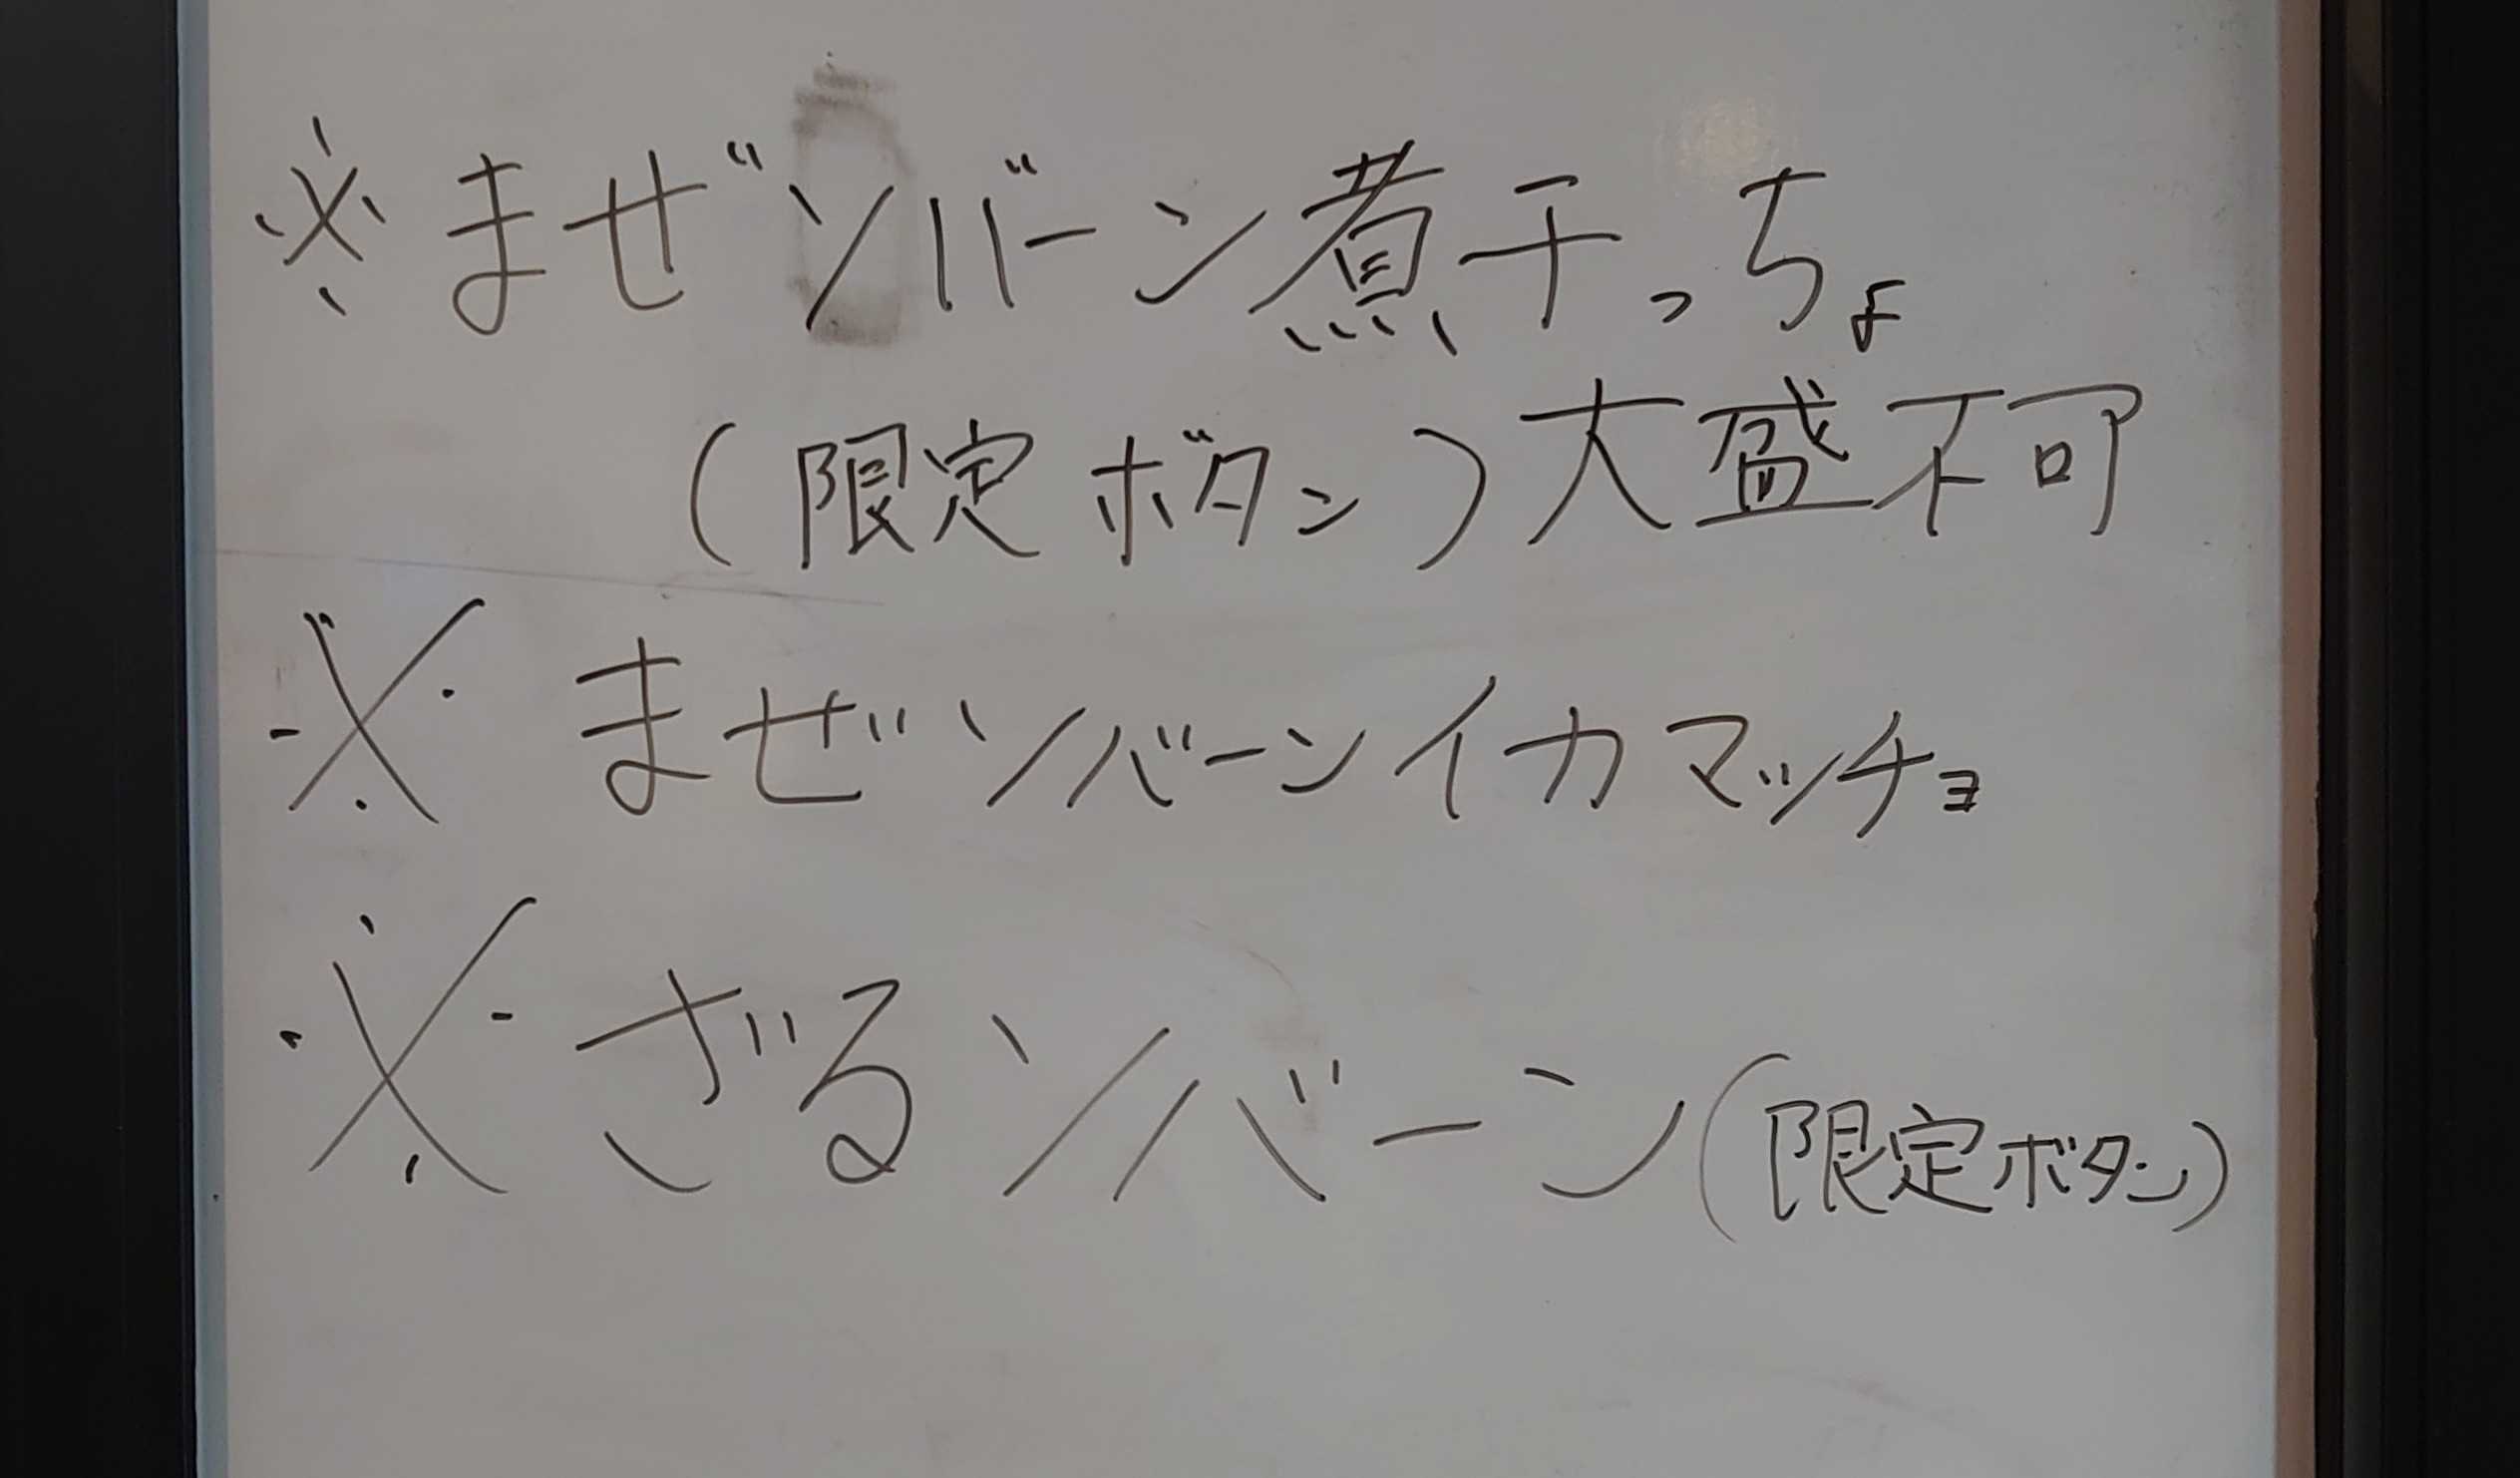 ※ まぜソバーン煮干っちょ
(限定ボタン)大盛不可
※ まぜソバーンイカマッチョ
※ ざるソバーン(限定ボタン)